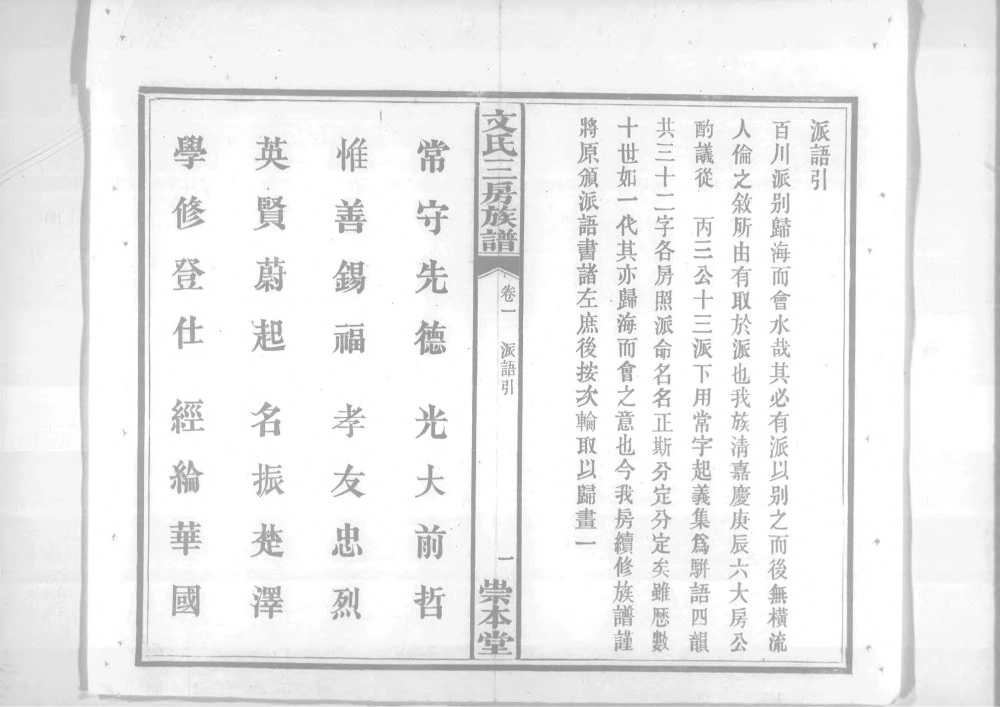 派語引
百川派別歸海而會水哉其必有派以別之而後無橫流
人倫之敘所由有取於派也我族淸嘉慶庚辰六大房公
酌議從　丙三公十三派下用常字起義集爲駢語四韻
共三十二字各房照派命名名正斯分定分定矣雖歷數
十世如一代其亦歸海而會之意也今我房續修族譜謹
將原頒派語書諸左庶後按次輪取以歸畫一
文氏三房族譜
卷一　派語引
一
崇本堂
常守先德　光大前哲
惟善錫福　孝友忠烈
英賢蔚起　名振楚澤
學修登仕　經綸華國